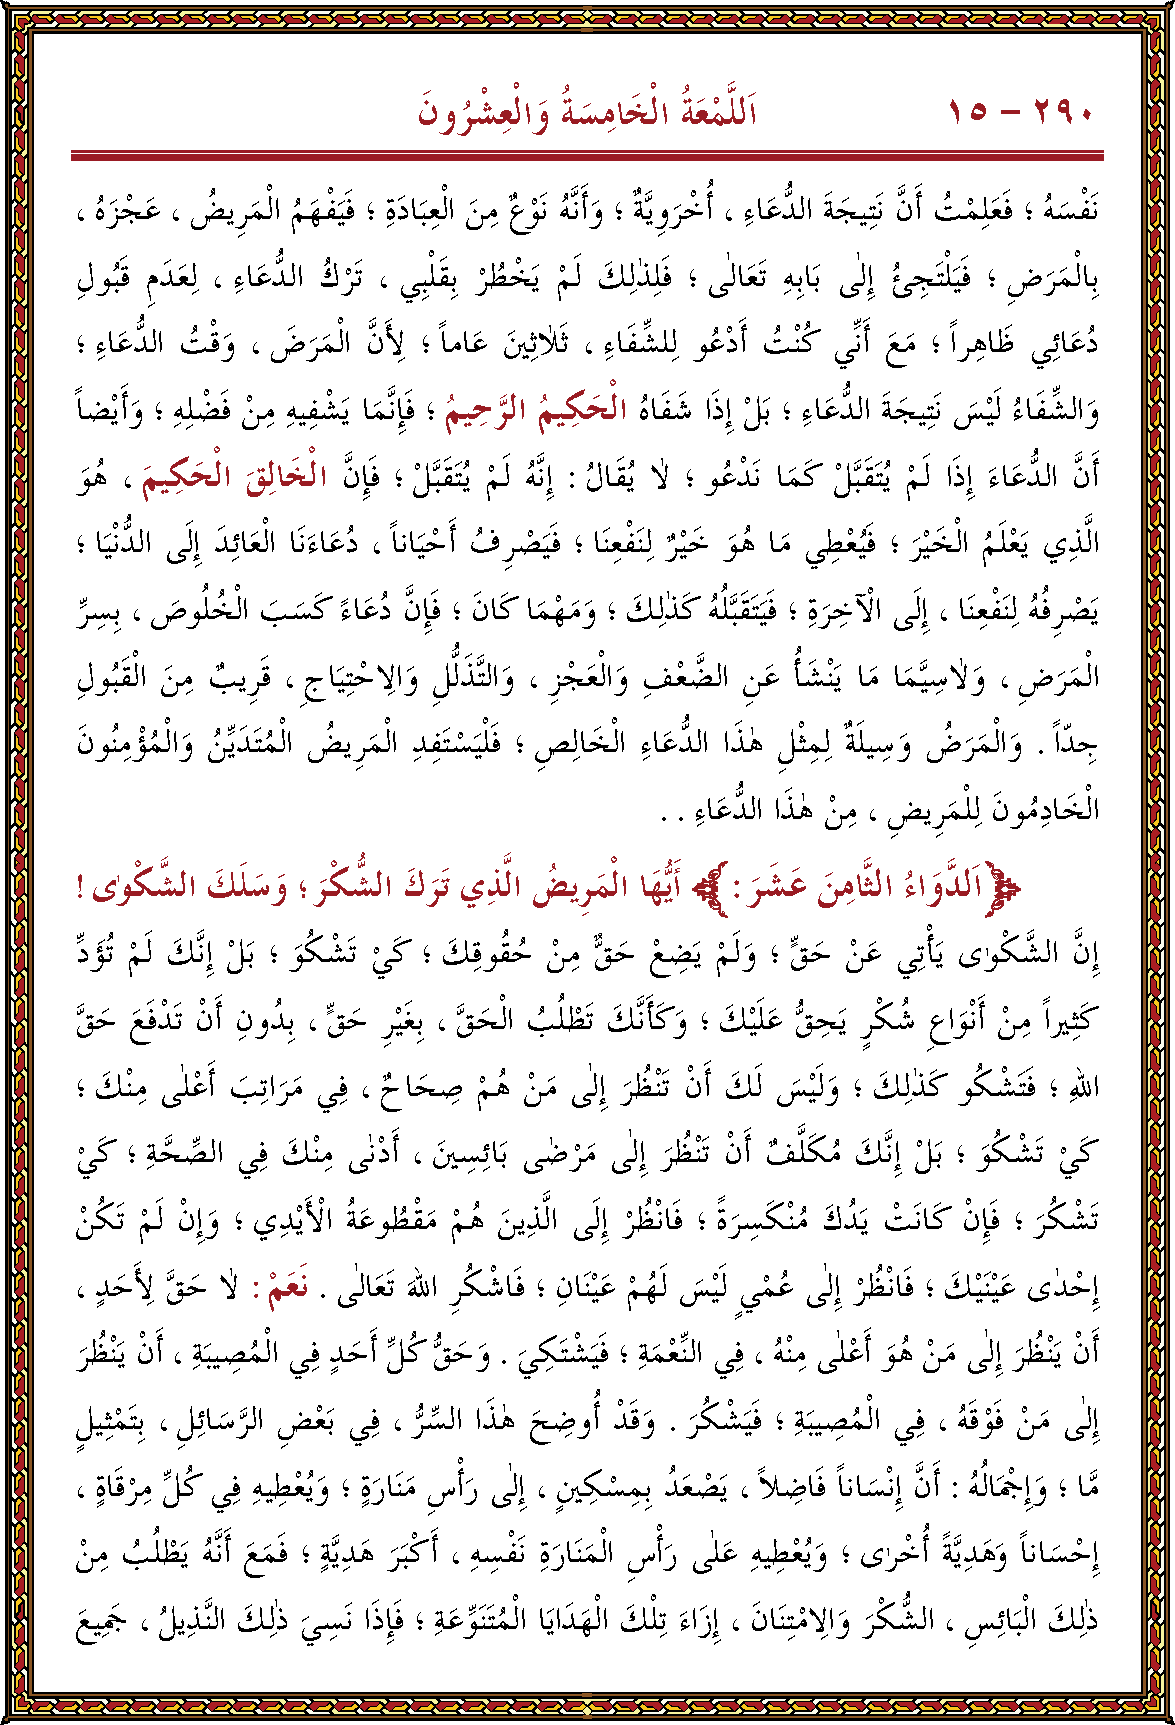 ٢٩٠ – ١٥ اَللَّمْعَةُ الْخَامِسَةُ وَالْعِشْرُونَ
نَفْسَهُ ؛ فَعَلِمْتُ أَنَّ نَتِيجَةَ الدُّعَاءِ ، أُخْرَوِيَّةٌ ؛ وَأَنَّهُ نَوْعٌ مِنَ الْعِبَادَةِ ؛ فَيَفْهَمُ الْمَرِيضُ ، عَجْزَهُ ،
بِالْمَرَضِ ؛ فَيَلْتَجِئُ إِلٰى بَابِهِ تَعَالٰى ؛ فَلِذٰلِكَ لَمْ يَخْطُرْ بِقَلْبِي ، تَرْكُ الدُّعَاءِ ، لِعَدَمِ قُبُولِ
دُعَائِي ظَاهِراً ؛ مَعَ أَنِّي كُنْتُ أَدْعُو لِلشِّفَاءِ ، ثَلاٰثِينَ عَاماً ؛ لِأَنَّ الْمَرَضَ ، وَقْتُ الدُّعَاءِ ؛
وَالشِّفَاءُ لَيْسَ نَتِيجَةَ الدُّعَاءِ ؛ بَلْ إِذَا شَفَاهُ الْحَكِيمُ الرَّحِيمُ ؛ فَإِنَّمَا يَشْفِيهِ مِنْ فَضْلِهِ ؛ وَأَيْضاً
أَنَّ الدُّعَاءَ إِذَا لَمْ يُتَقَبَّلْ كَمَا نَدْعُو ؛ لاٰ يُقَالُ : إِنَّهُ لَمْ يُتَقَبَّلْ ؛ فَإِنَّ الْخَالِقَ الْحَكِيمَ ، هُوَ
الَّذِي يَعْلَمُ الْخَيْرَ ؛ فَيُعْطِي مَا هُوَ خَيْرٌ لِنَفْعِنَا ؛ فَيَصْرِفُ أَحْيَاناً ، دُعَاءَنَا الْعَائِدَ إِلَى الدُّنْيَا ؛
يَصْرِفُهُ لِنَفْعِنَا ، إِلَى الْآخِرَةِ ؛ فَيَتَقَبَّلُهُ كَذٰلِكَ ؛ وَمَهْمَا كَانَ ؛ فَإِنَّ دُعَاءً كَسَبَ الْخُلُوصَ ، بِسِرِّ
الْمَرَضِ ، وَلاٰسِيَّمَا مَا يَنْشَأُ عَنِ الضَّعْفِ وَالْعَجْزِ ، وَالتَّذَلُّلِ وَالِاحْتِيَاجِ ، قَرِيبٌ مِنَ الْقَبُولِ
جِدّاً . وَالْمَرَضُ وَسِيلَةٌ لِمِثْلِ هٰذَا الدُّعَاءِ الْخَالِصِ ؛ فَلْيَسْتَفِدِ الْمَرِيضُ الْمُتَدَيِّنُ وَالْمُؤْمِنُونَ
الْخَادِمُونَ لِلْمَرِيضِ ، مِنْ هٰذَا الدُّعَاءِ . .
﴿اَلدَّوَاءُ الثَّامِنَ عَشَرَ :﴾ أَيُّهَا الْمَرِيضُ الَّذِي تَرَكَ الشُّكْرَ ؛ وَسَلَكَ الشَّكْوٰى !
إِنَّ الشَّكْوٰى يَأْتِي عَنْ حَقٍّ ؛ وَلَمْ يَضِعْ حَقٌّ مِنْ حُقُوقِكَ ؛ كَيْ تَشْكُوَ ؛ بَلْ إِنَّكَ لَمْ تُؤَدِّ
كَثِيراً مِنْ أَنْوَاعِ شُكْرٍ يَحِقُّ عَلَيْكَ ؛ وَكَأَنَّكَ تَطْلُبُ الْحَقَّ ، بِغَيْرِ حَقٍّ ، بِدُونِ أَنْ تَدْفَعَ حَقَّ
اللهِ ؛ فَتَشْكُو كَذٰلِكَ ؛ وَلَيْسَ لَكَ أَنْ تَنْظُرَ إِلٰى مَنْ هُمْ صِحَاحٌ ، فِي مَرَاتِبَ أَعْلٰى مِنْكَ ؛
كَيْ تَشْكُوَ ؛ بَلْ إِنَّكَ مُكَلَّفٌ أَنْ تَنْظُرَ إِلٰى مَرْضٰى بَائِسِينَ ، أَدْنٰى مِنْكَ فِي الصِّحَّةِ ؛ كَيْ
تَشْكُرَ ؛ فَإِنْ كَانَتْ يَدُكَ مُنْكَسِرَةً ؛ فَانْظُرْ إِلَى الَّذِينَ هُمْ مَقْطُوعَةُ الْأَيْدِي ؛ وَإِنْ لَمْ تَكُنْ
إِحْدٰى عَيْنَيْكَ ؛ فَانْظُرْ إِلٰى عُمْيٍ لَيْسَ لَهُمْ عَيْنَانِ ؛ فَاشْكُرِ اللهَ تَعَالٰى . نَعَمْ : لاٰ حَقَّ لِأَحَدٍ ،
أَنْ يَنْظُرَ إِلٰى مَنْ هُوَ أَعْلٰى مِنْهُ ، فِي النِّعْمَةِ ؛ فَيَشْتَكِيَ . وَحَقُّ كُلِّ أَحَدٍ فِي الْمُصِيبَةِ ، أَنْ يَنْظُرَ
إِلٰى مَنْ فَوْقَهُ ، فِي الْمُصِيبَةِ ؛ فَيَشْكُرَ . وَقَدْ أُوضِحَ هٰذَا السِّرُّ ، فِي بَعْضِ الرَّسَائِلِ ، بِتَمْثِيلٍ
مَّا ؛ وَإِجْمَالُهُ : أَنَّ إِنْسَاناً فَاضِلاً ، يَصْعَدُ بِمِسْكِينٍ ، إِلٰى رَأْسِ مَنَارَةٍ ؛ وَيُعْطِيهِ فِي كُلِّ مِرْقَاةٍ ،
إِحْسَاناً وَهَدِيَّةً أُخْرٰى ؛ وَيُعْطِيهِ عَلٰى رَأْسِ الْمَنَارَةِ نَفْسِهِ ، أَكْبَرَ هَدِيَّةٍ ؛ فَمَعَ أَنَّهُ يَطْلُبُ مِنْ
ذٰلِكَ الْبَائِسِ ، الشُّكْرَ وَالِامْتِنَانَ ، إِزَاءَ تِلْكَ الْهَدَايَا الْمُتَنَوِّعَةِ ؛ فَإِذَا نَسِيَ ذٰلِكَ النَّذِيلُ ، جَمِيعَ